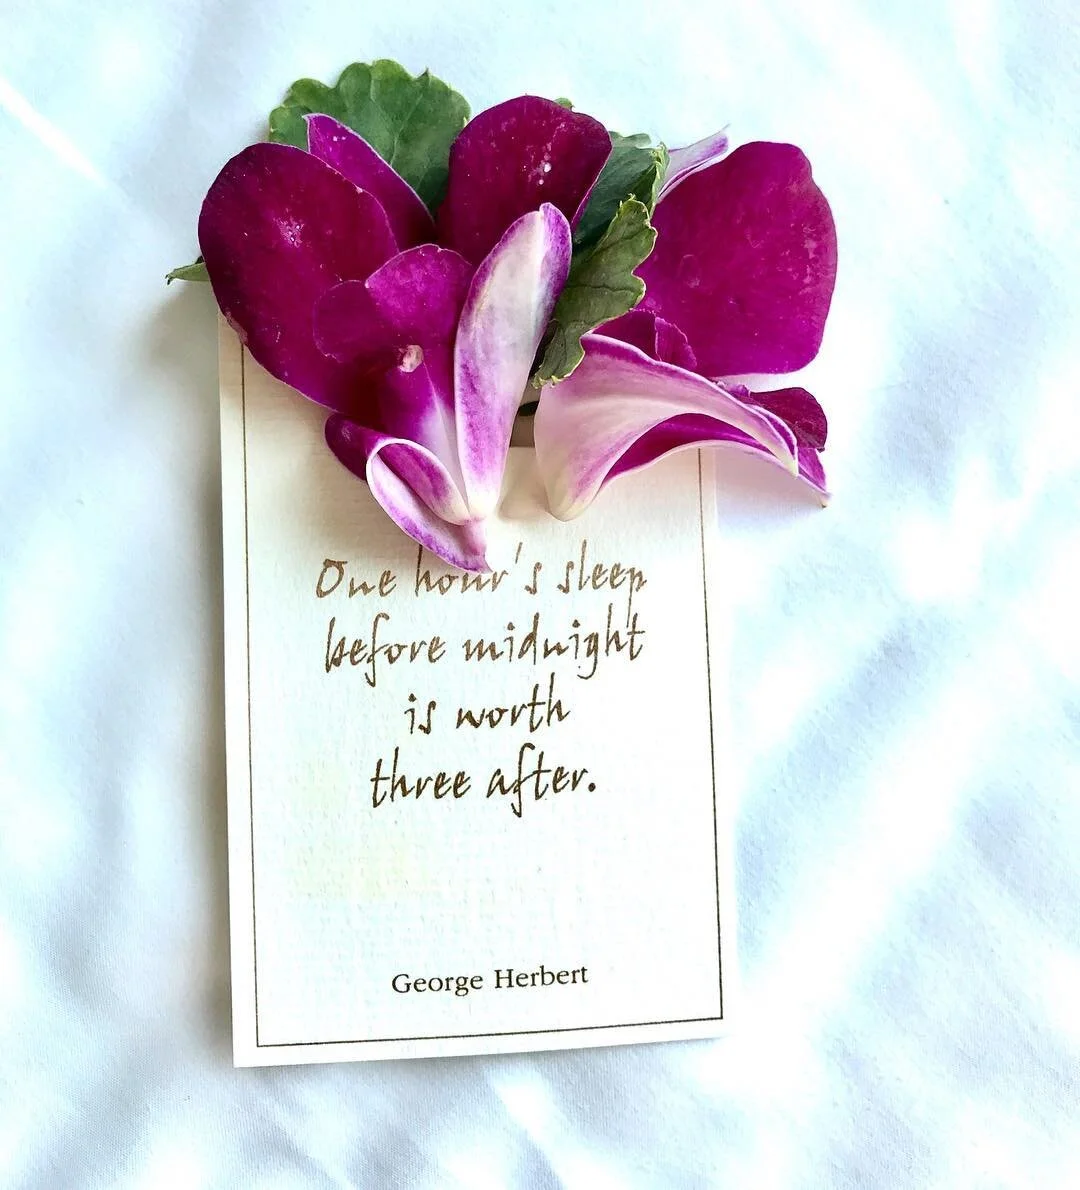 One hour's sleep
before midnight
is worth
three after.
George Herbert